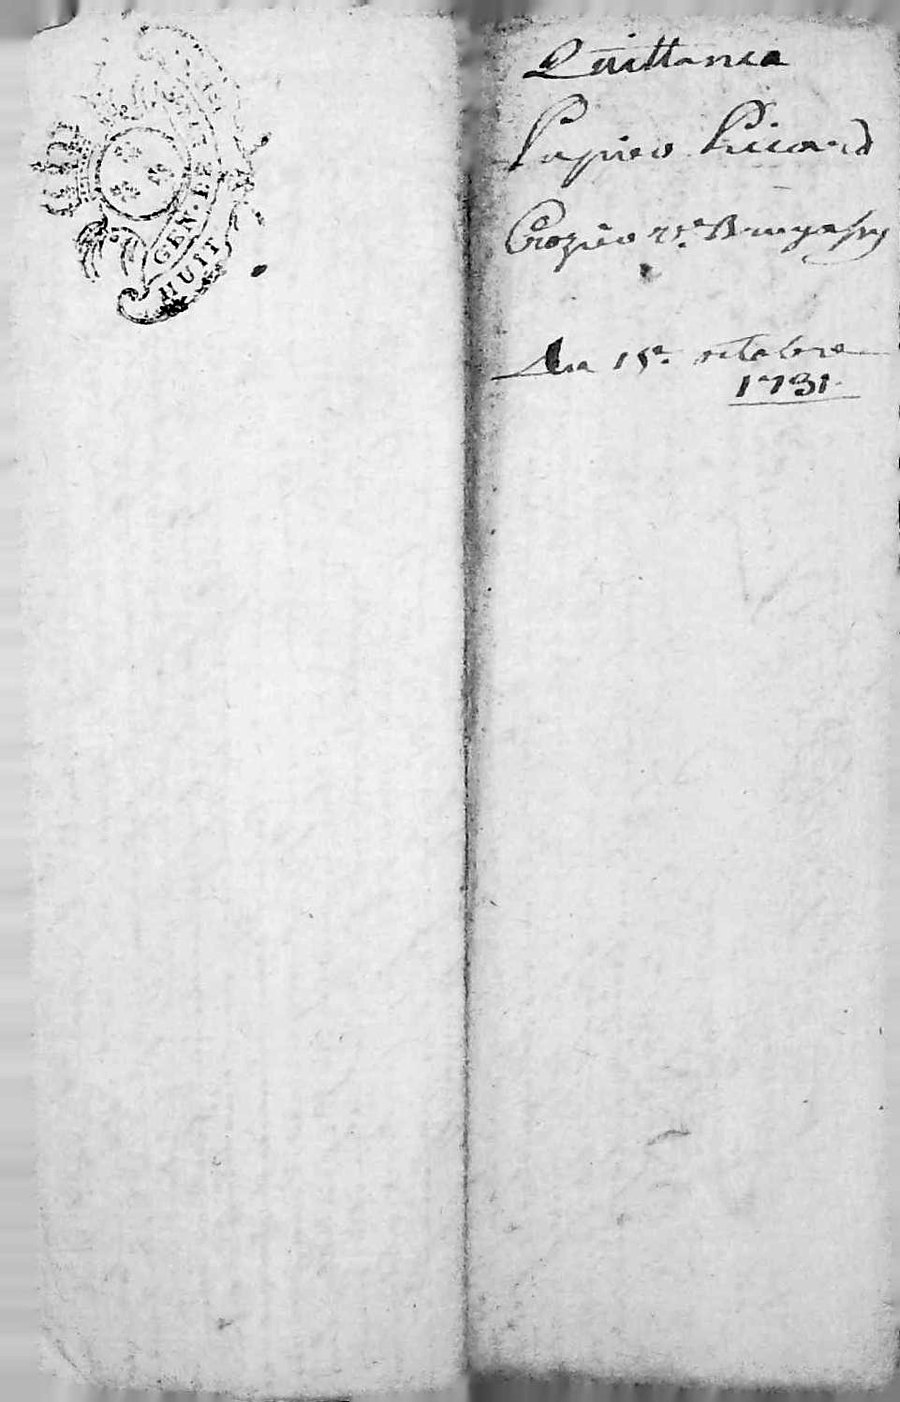 GEN. DE
HUIT
Quittance
Papiers Ricard
Crozier v.e Brugassy
Du 15e. octobre
1731.